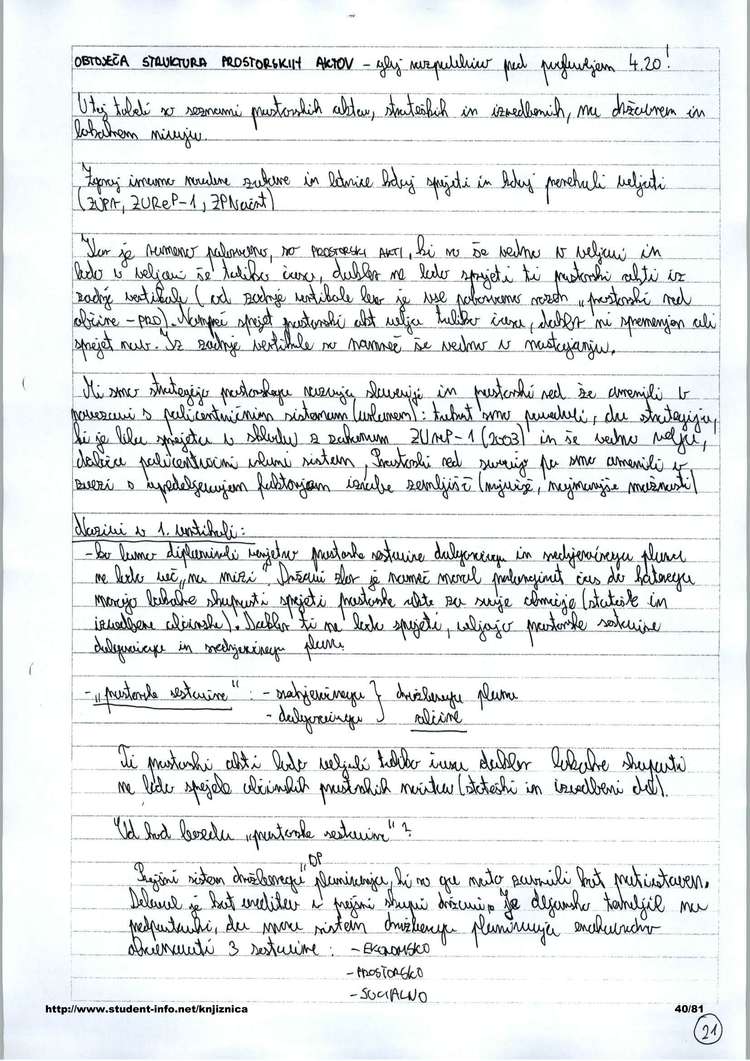 OBSTOJEČA STRUKTURA PROSTORSKIH AKTOV – glej razpredelnico pod poglavjem 4.20!
V tej tabeli so seznami prostorskih aktov, strateških in izvedbenih, na državnem in
lokalnem nivoju.
Zgoraj imamo navedene zakone in letnice kdaj spejeti in kdaj prenehali veljati
(ZUPA, ZUReP-1, ZPNačrt)
Kar je rumeno pobarvano, so PROSTORSKI AKTI, ki so še vedno v veljavi in
bodo v veljavi še toliko časa, dokler ne bodo sprejeti ti prostorski akti iz
zadnje vertikale (od zadnje vertikale levo je vse pobarvano razen „prostorski red
občine – PRO). Namreč sprejet prostorski akt velja toliko časa, dokler ni spremenjen ali
sprejet nov. Iz zadnje vertikale so namreč še vedno v nastajanju.
Mi smo strategijo prostorskega razvoja slovenije in prostorski red že omenili v
povezavi s policentričnim sistemom (urbanem): takrat smo povedali, da strategija,
ki je bila sprejeta v skladu z zakonom ZUReP-1 (2003) in še vedno velja,
določa policentrični urbani sistem. Prostorski red slovenije pa smo omenili v
zvezi o opredeljevanjem faktorjem izrabe zemljišč (največje, najmanjše možnosti)
Nazivi v 1. vertikali:
- Ko bomo diplomirali verjetno prostorske sestavine dolgoročnega in srednjeročnega plana
ne bodo več „na mizi“. Državni zbor je namreč moral podaljšat čas do katerega
morajo lokalne skupnosti sprejeti prostorske akte za svoje območje (strateške in
izvedbene občinske). Dokler ti ne bodo sprejeti, veljajo prostorske sestavine
dolgoročnega in srednjeročnega plana.
- „prostorske sestavine“ : - srednjeročnega } družbenega plana
- dolgoročnega } občine
Ti prostorski akti bodo veljali toliko časa dokler lokalne skupnosti
ne bodo sprejele občinskih prostorskih načrtov (strateški in izvedbeni del).
Od kod beseda „prostorske sestavine“?
Prejšni sistem družbenega planiranja, ki so ga nato zavrnili kot
„DP
Deloval je kot ureditev v prejšni skupni državi. Je dejansko temeljil na
predpostavki, da mora sistem družbenega planiranja enakovredno
obravnavati 3 sestavine: - EKONOMSKO
- PROSTORSKO
- SOCIALNO
http://www.student-info.net/knjiznica
40/81
21